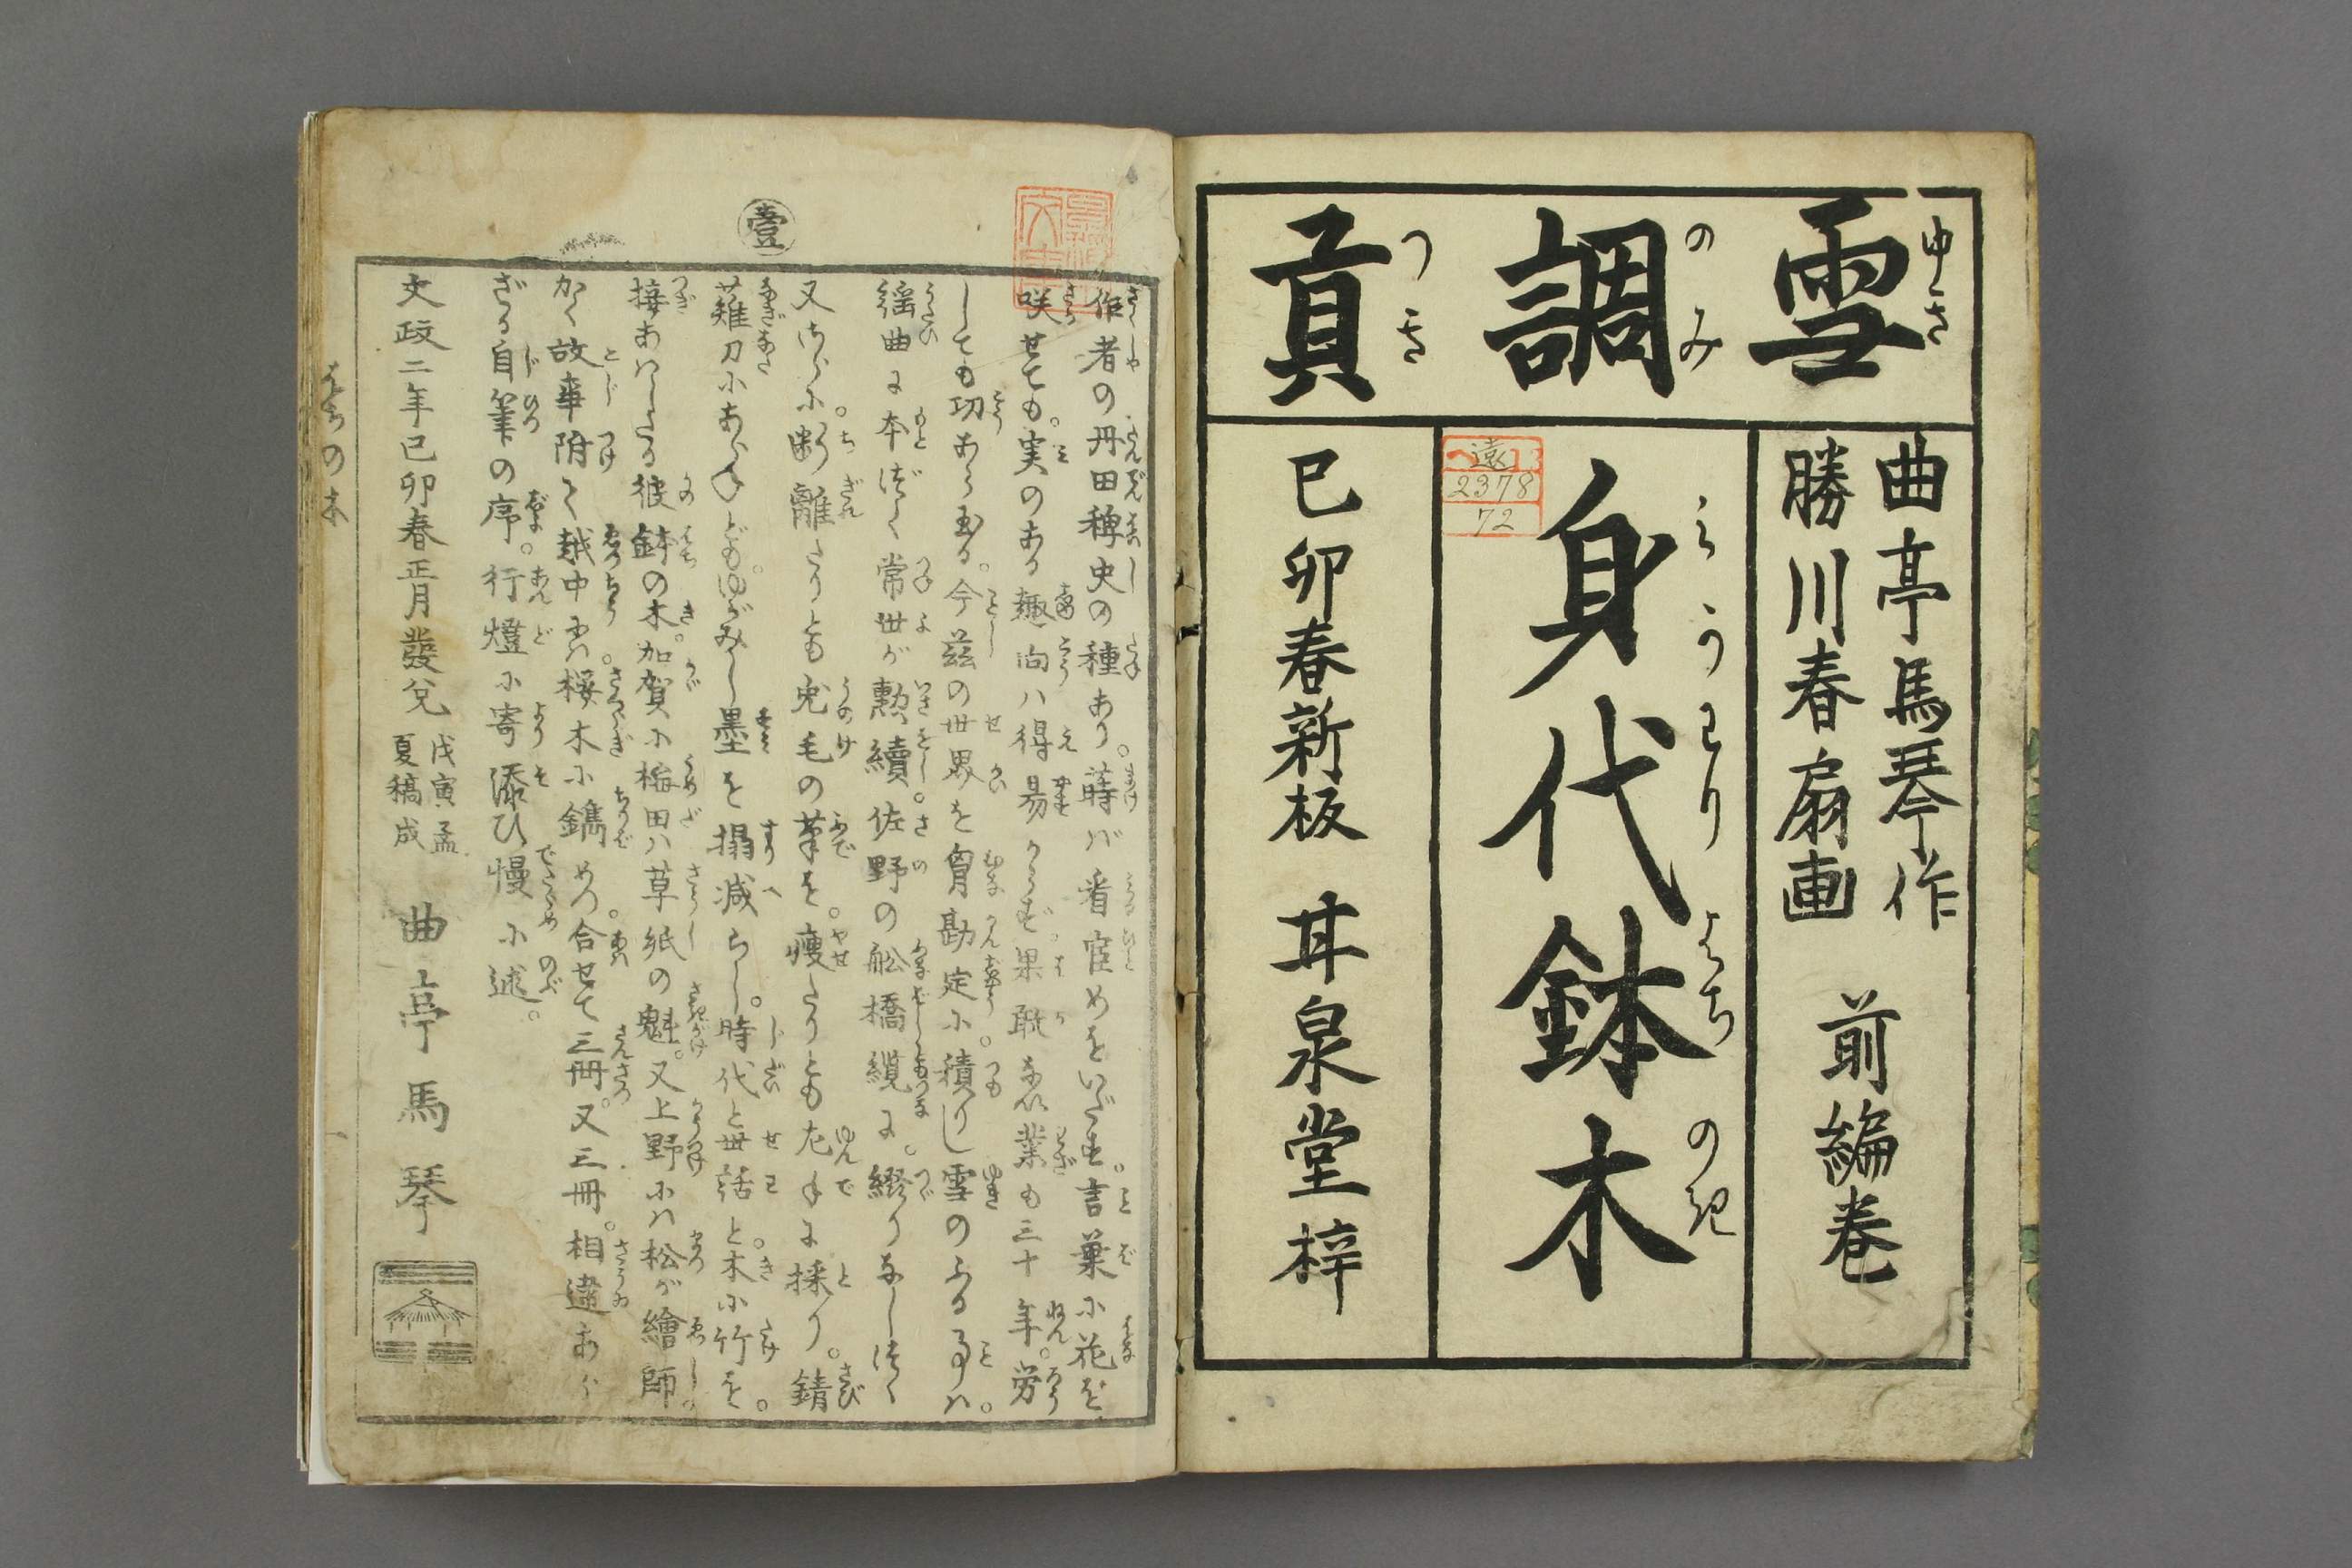 雪調貢
ゆきのみつき
曲亭馬琴作
勝川春扇画
前編巻
身代鉢木
みがわりはちのき
遠
2378
72
己卯春新板 甘泉堂梓
壹
作者の丹田稗史の種あり。蒔ば看官めをいだす。言葉に花を
咲せても。実のある趣向ハ得易からず果敢なき業も三十年。労
しても功あらざる。今茲の世界を胸勘定に。積りし雪のふる事ハ。
謡曲に本づく常世が勲績。佐野の舩橋纜に。綴りなしつゝ
又さらに。断離たりとも兎毛の筆を。痩たりとも左手に採り。錆
薙刀にあらねども。ゆがみし墨を搨減らし。時代と世話と。木に竹を。
接あはしたる彼鉢の木。加賀に梅田ハ草紙の魁。又上野にハ松が繪師。
かく故事附て越中ハ。桜木に鐫めつ。合せて三冊又三冊。相違あら
ざる自筆の序。行燈に寄添ひ慢に述。
文政二年己卯春正月發兌
戊寅孟
夏稿成
曲亭馬琴
はちの木
一